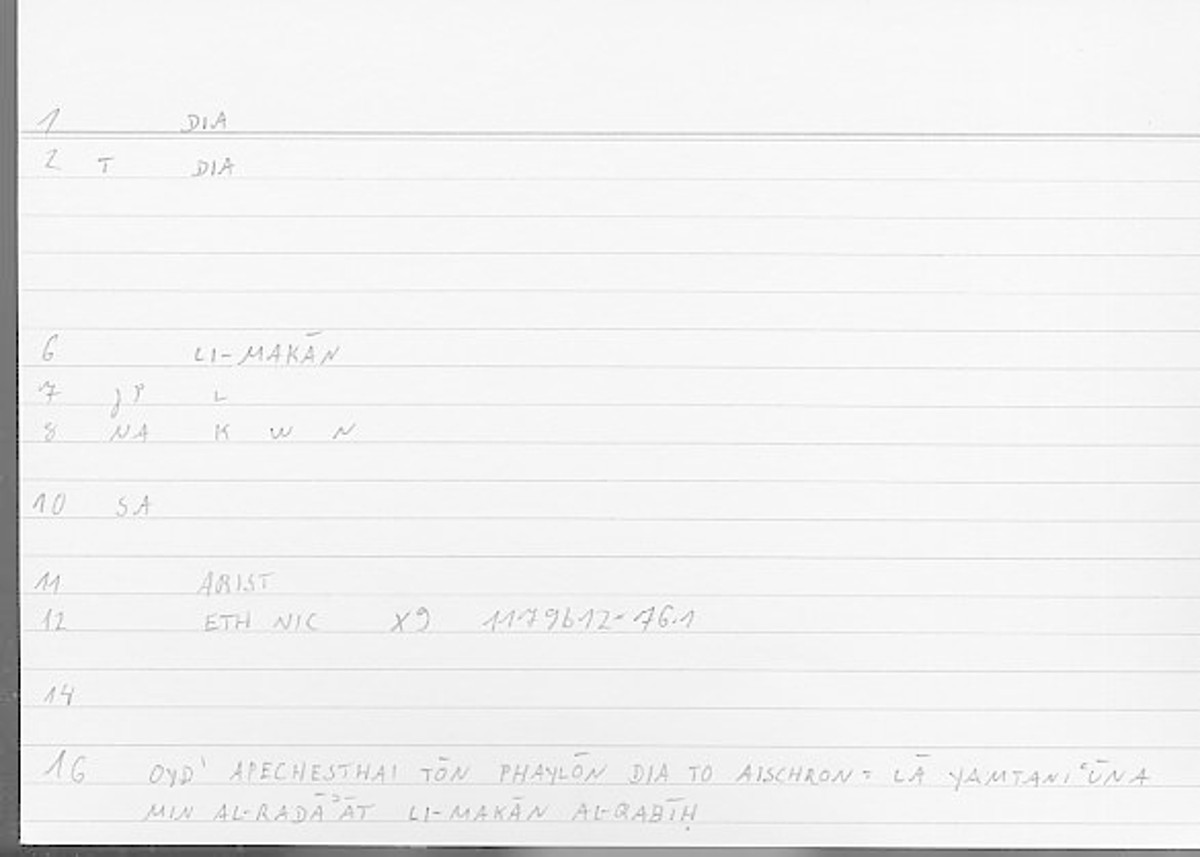 1 DIA
2 T DIA
6 LI-MAKĀN
7 JP L
8 NA K W N
10 SA
11 ARIST
12 ETH NIC X9 1179b12=76.1
14
16 OYD' APECHESTHAI TŌN PHAYLŌN DIA TO AISCHRON = LĀ YAMTANIʿŪNA
MIN AL-RADĀʾĀT LI-MAKĀN AL-QABĪḤ